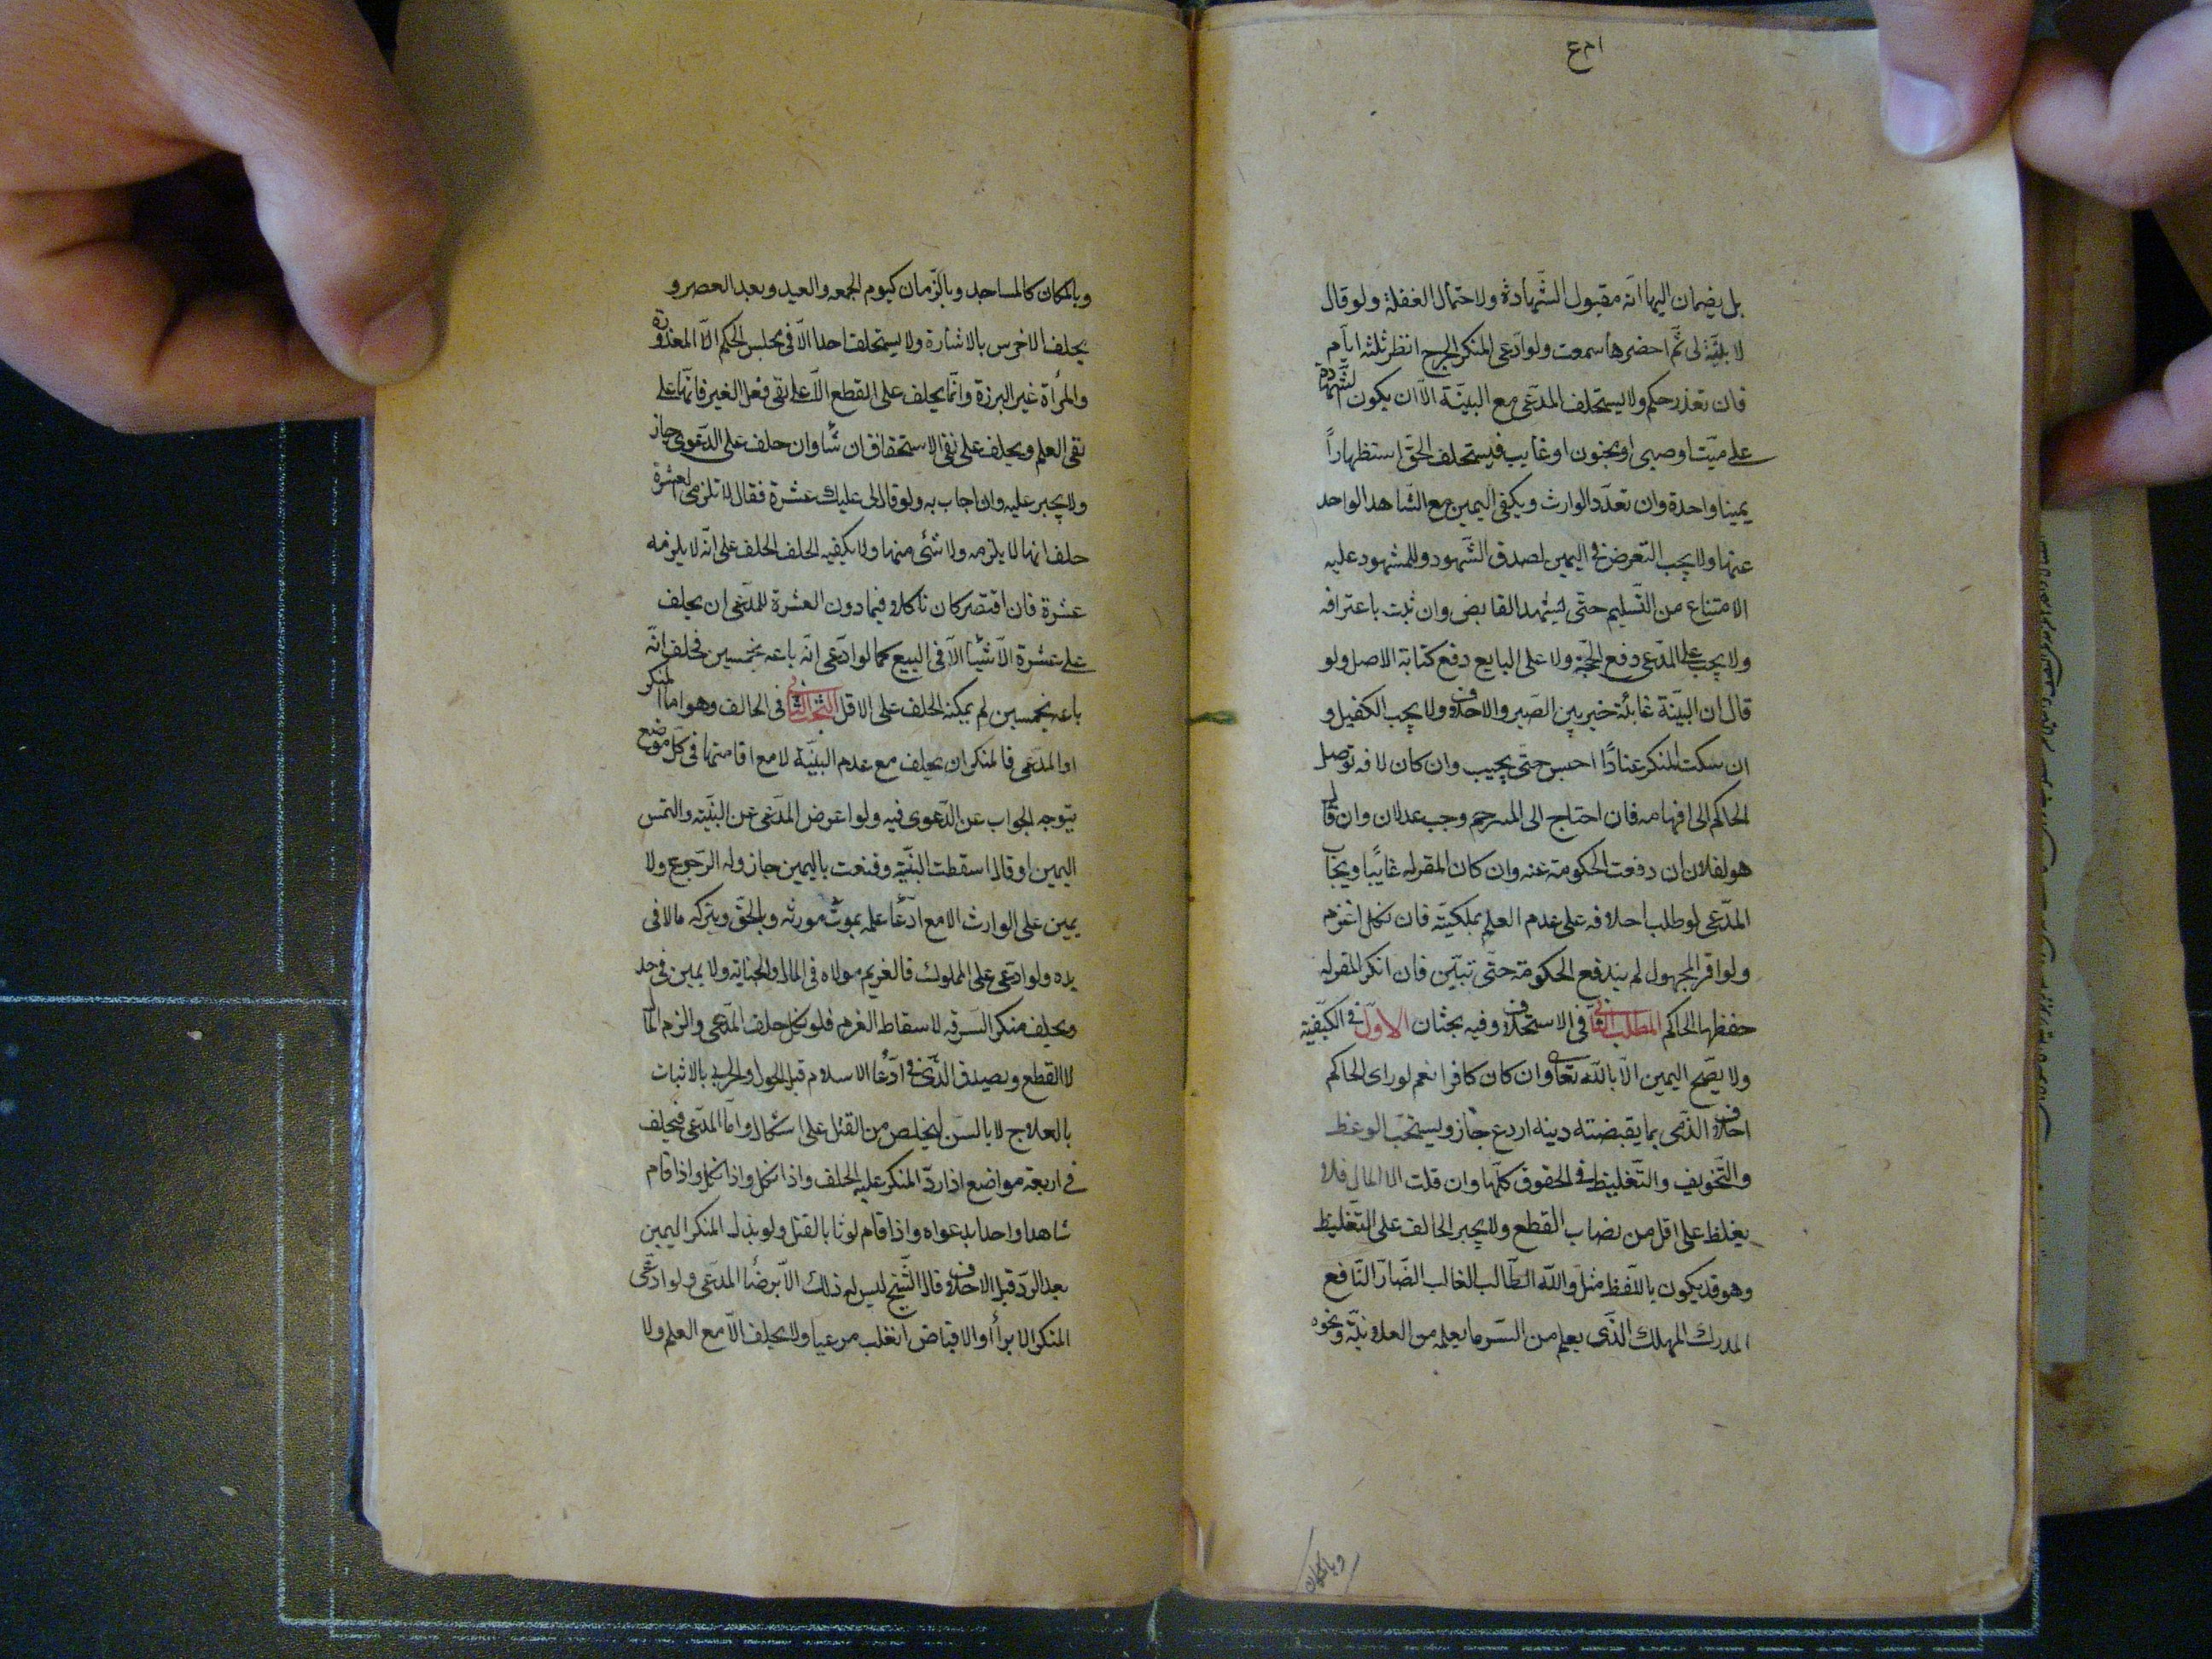 بل يضمان اليها انه مقبول الشهادة ولاحتمال الغفلة ولو قال
لا بينة لى ثم احضرها سمعت ولو ادعى المنكر الجرح انظر ثلثه ايام
فان تعذر حكم ولا يستحلف المدعى مع البينة الا ان يكون الشهادة
على ميت او صبى او مجنون او غايب فيستحلف الحق استظهاراً
يمينا واحدة وان تعدد الوارث ويكفى اليمين مع الشاهد الواحد
عنها ولا يجب التعرض فى اليمين لصدق الشهود وللمشهود عليه
الامتناع من التسليم حتى يشهد القابض وان ثبت باعترافه
ولا يجب على المدعى دفع الحجة ولا على البايع دفع كتابة الاصل ولو
قال ان البينة غائبة خير بين الصبر والاحلاف ولا يجب الكفيل و
ان سكت المنكر عنادًا احبس حتى يجيب وان كان لافه توصل
الحاكم الى افهامه فان احتاج الى المترجم وجب عدلان وان قال
هو لفلان اندفعت الحكومة عنه وان كان المقر له غايبًا ويجاب
المدعى لو طلب احلافه على عدم العلم بملكيته فان نكل اغرم
ولو اقر المجهول لم يندفع الحكومة حتى تبين فان انكر المقر له
حفظها الحاكم المطلب الثانى فى الاستحلاف وفيه بحثان الاول فى الكيفية
ولا يصح اليمين الا بالله تعالى وان كان كافرا نعم لو راى الحاكم
احلاف الذمى بما يقبضته دينه اردع جاز ويستحب الوعظ
والتخويف والتغليظ فى الحقوق كلها وان قلت الا المال فلا
يغلظ على اقل من نصاب القطع ولا يجبر الحالف على التغليظ
وهو قد يكون باللفظ مثل والله الطالب الغالب الضار النافع
المدرك المهلك الذى يعلم من السر ما يعلمه من العلانية ونحوه
وبالمكان
وبالمكان كالمساجد وبالزمان كيوم الجمعه والعيد وبعد العصر و
يحلف الاخرس بالاشارة ولا يستحلف احدا الا فى مجلس الحكم الا المعذورة
والمرأة غير البرزة وانما يحلف على القطع الا على نفى فعل الغير فانها على
نفى العلم ويحلف على نفى الاستحقاق ان شا وان حلف على الدعوى جاز
ولا يجبر عليه وان اجاب به ولو قال لى عليك عشرة فقال لا تلزمى العشرة
حلف انها لا يلزمه ولا شئ منها ولا يكفيه الحلف الحلف على انه لا يلزمه
عشرة فان اقتصر كان ناكلا فيما دون العشرة للمدعى ان يحلف
على عشرة الا شيأ الا فى البيع كما لو ادعى انه باعه بخمسين فحلف انه
باعه بخمسين لم يمكنه الحلف على الاقل البحث الثانى فى الحالف وهو اما المنكر
او المدعى فالمنكر ان يحلف مع عدم البينة لا مع اقامتها فى كل موضع
يتوجه الجواب عن الدعوى فيه ولو اعرض المدعى عن البينه والتمس
اليمين او قال اسقطت البينة وقنعت باليمين جاز وله الرجوع ولا
يمين على الوارث الا مع ادعا علمه بموت مورثه وبالحق وبتركه مالا فى
يده ولو ادعى على المملوك فالغريم مولاه فى المال والجنايه ولا يمين فى حد
ويحلف منكر السرقه لاسقاط الغرم فلو نكل حلف المدعى والزم المال
لا القطع ويصدق الذمى فى ادعا الاسلام قبل الحول والحربى بالاثبات
بالعلاج لا بالسن ليخلص من القتل على اشكال واما المدعى فيحلف
فى اربعة مواضع اذا رد المنكر عليه الحلف واذا نكل واذا نكل واذا قام
شاهدا واحدا بدعواه واذا قام لوثا بالقتل ولو بذل المنكر اليمين
بعد الرد قبل الاحلاف قال الشيخ ليس له ذلك الا برضا المدعى ولو ادعى
المنكر الابرأ او الاقباض انقلب مدعيا ولا يحلف الا مع العلم ولا